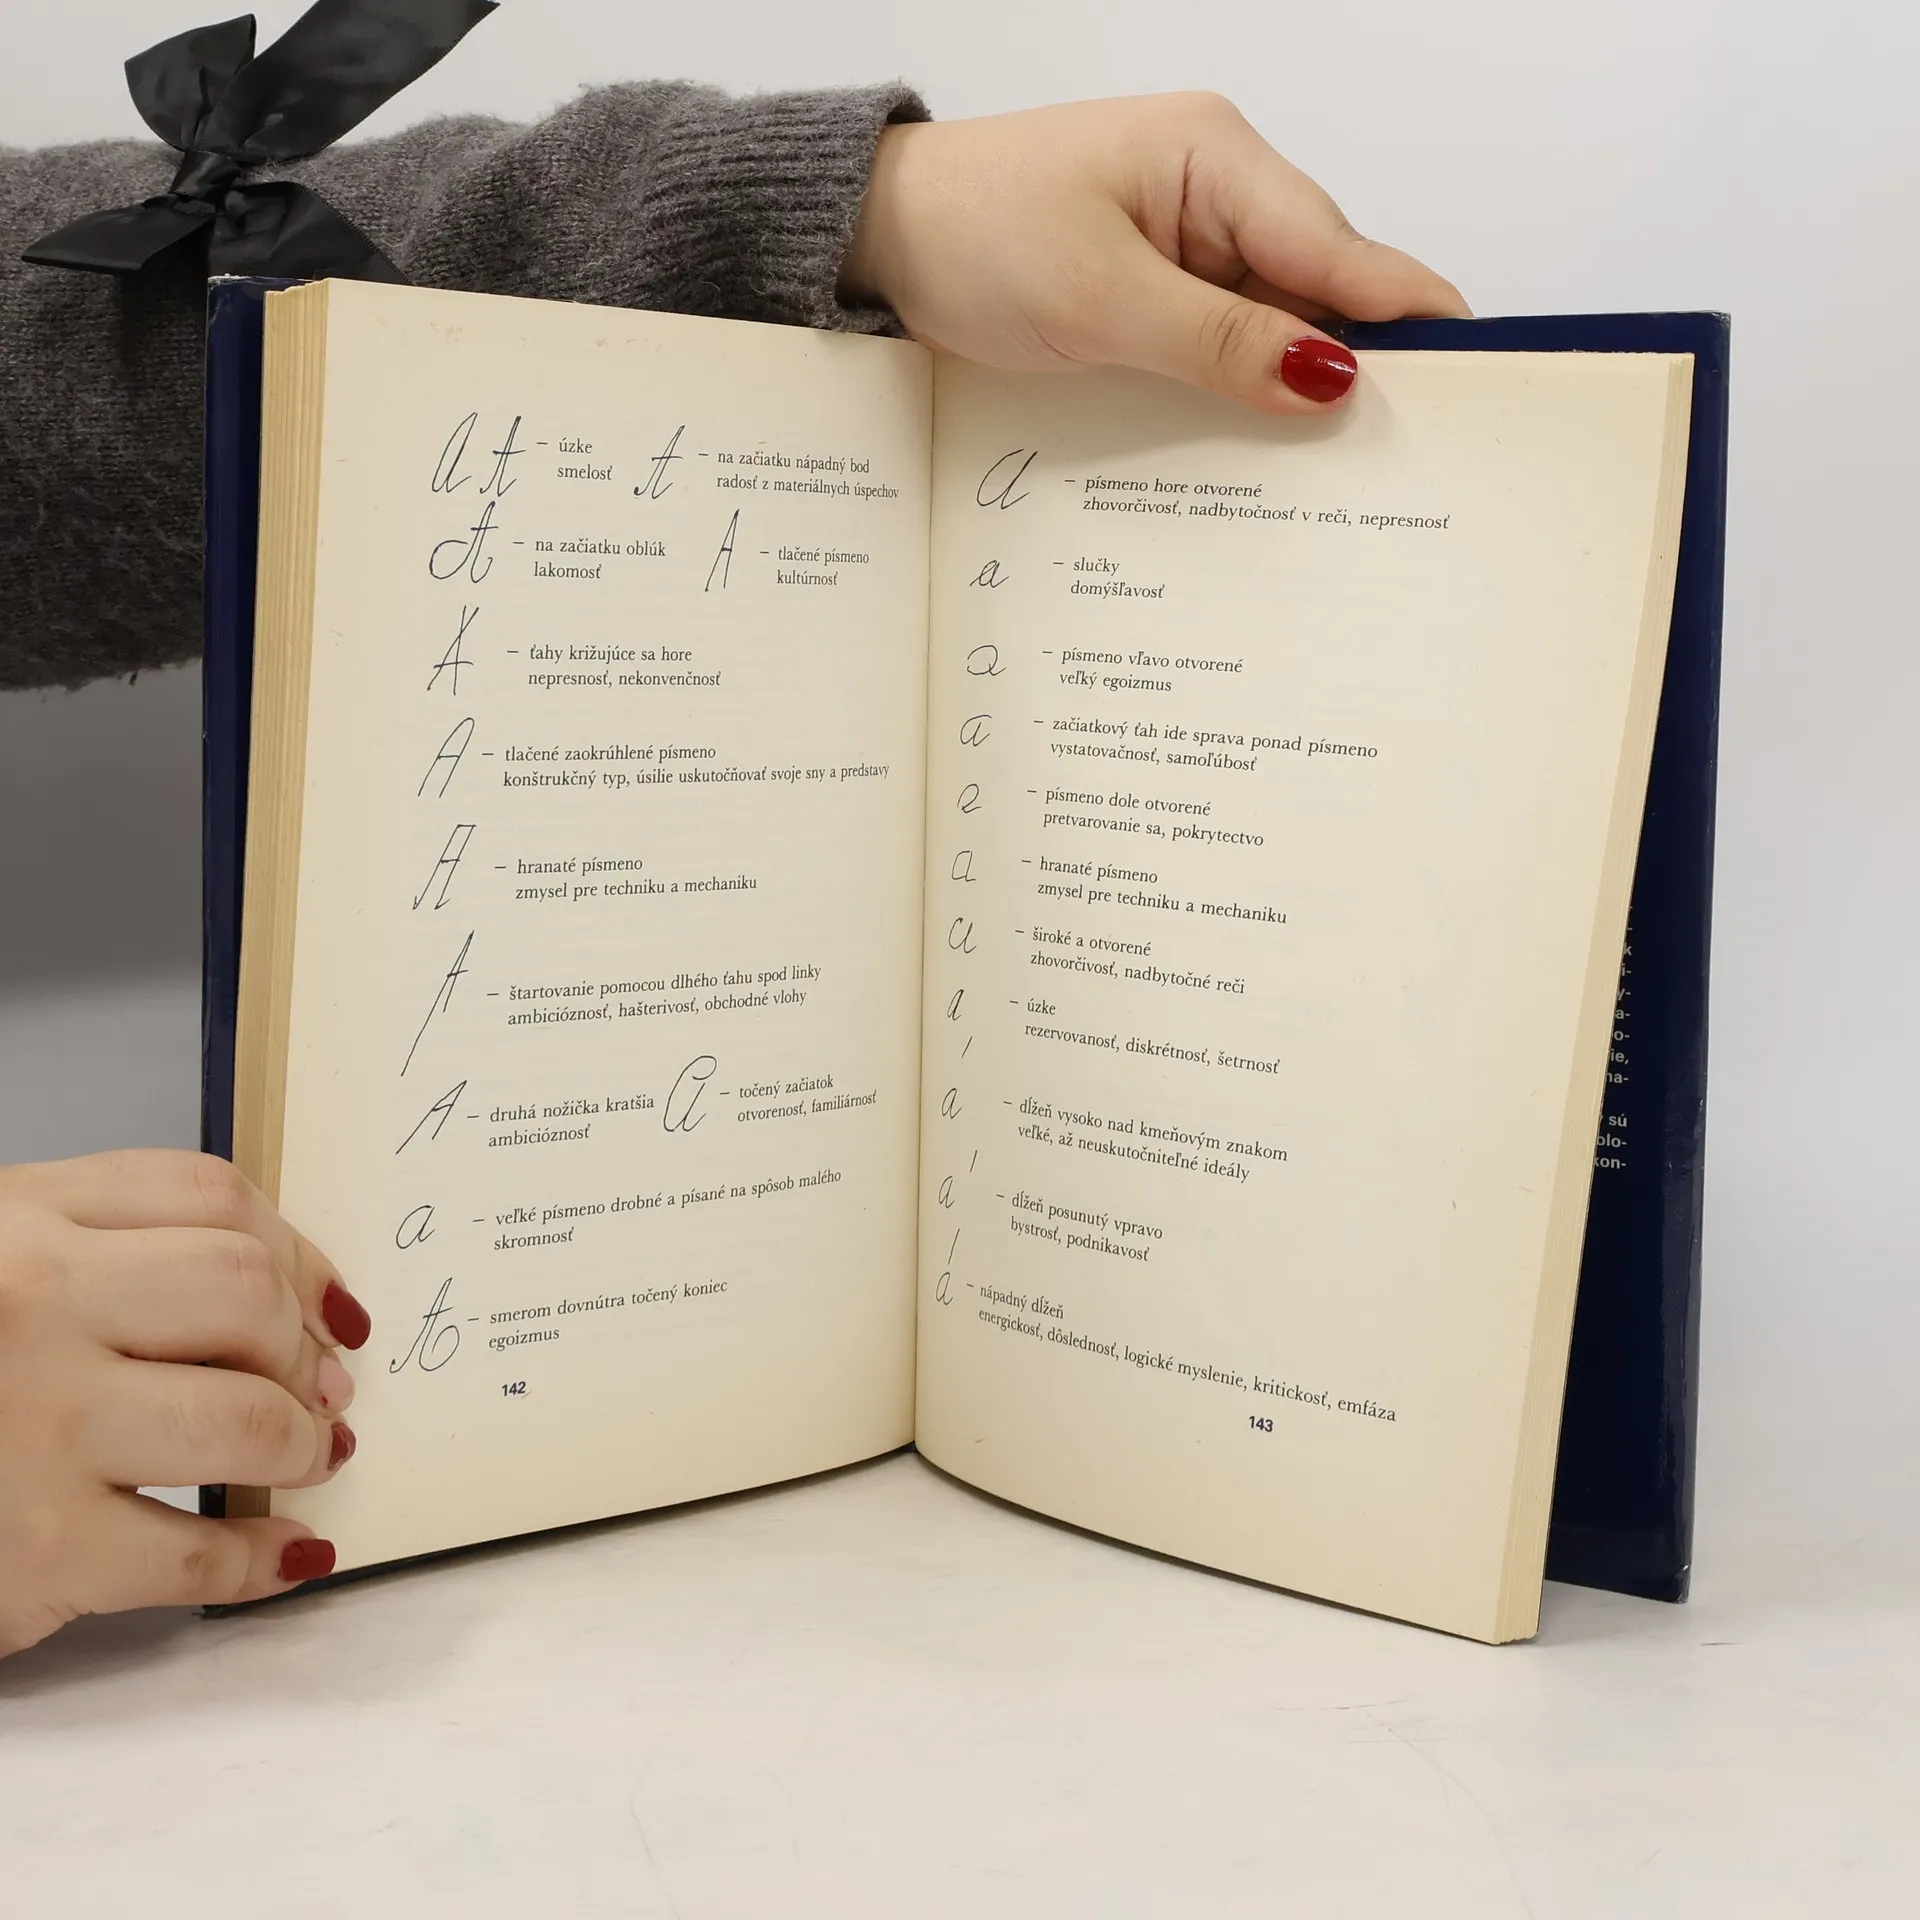 úzke
smelosť
– na začiatku nápadný bod
radosť z materiálnych úspechov
– na začiatku oblúk
lakomosť
– tlačené písmeno
kultúrnosť
– ťahy križujúce sa hore
nepresnosť, nekonvenčnosť
– tlačené zaokrúhlené písmeno
konštrukčný typ, úsilie uskutočňovať svoje sny a predstavy
– hranaté písmeno
zmysel pre techniku a mechaniku
– štartovanie pomocou dlhého ťahu spod linky
ambicióznosť, hašterivosť, obchodné vlohy
– druhá nožička kratšia
ambicióznosť
– točený začiatok
otvorenosť, familiárnosť
– veľké písmeno drobné a písané na spôsob malého
skromnosť
– smerom dovnútra točený koniec
egoizmus
142
– písmeno hore otvorené
zhovorčivosť, nadbytočnosť v reči, nepresnosť
– slučky
domýšľavosť
– písmeno vľavo otvorené
veľký egoizmus
– začiatkový ťah ide sprava ponad písmeno
vystatovačnosť, samoľúbosť
– písmeno dole otvorené
pretvarovanie sa, pokrytectvo
– hranaté písmeno
zmysel pre techniku a mechaniku
– široké a otvorené
zhovorčivosť, nadbytočné reči
– úzke
rezervovanosť, diskrétnosť, šetrnosť
– dĺžeň vysoko nad kmeňovým znakom
veľké, až neuskutočniteľné ideály
– dĺžeň posunutý vpravo
bystrosť, podnikavosť
– nápadný dĺžeň
energickosť, dôslednosť, logické myslenie, kritickosť, emfáza
143